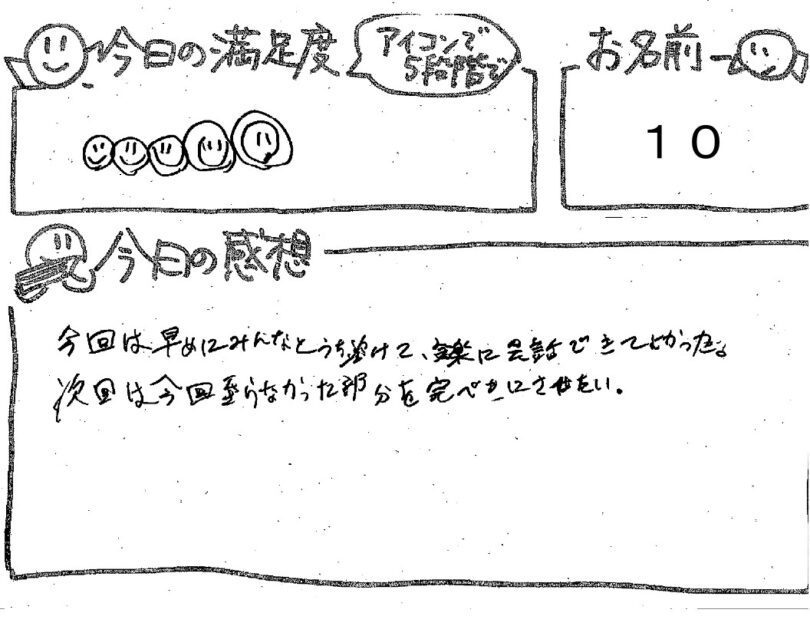 今日の満足度
アイコンで
5段階で
お名前
10
今日の感想
今回は早めにみんなとうち溶けて、楽に会話できてよかった。
次回は今回至らなかった部分を完ぺきにさせたい。